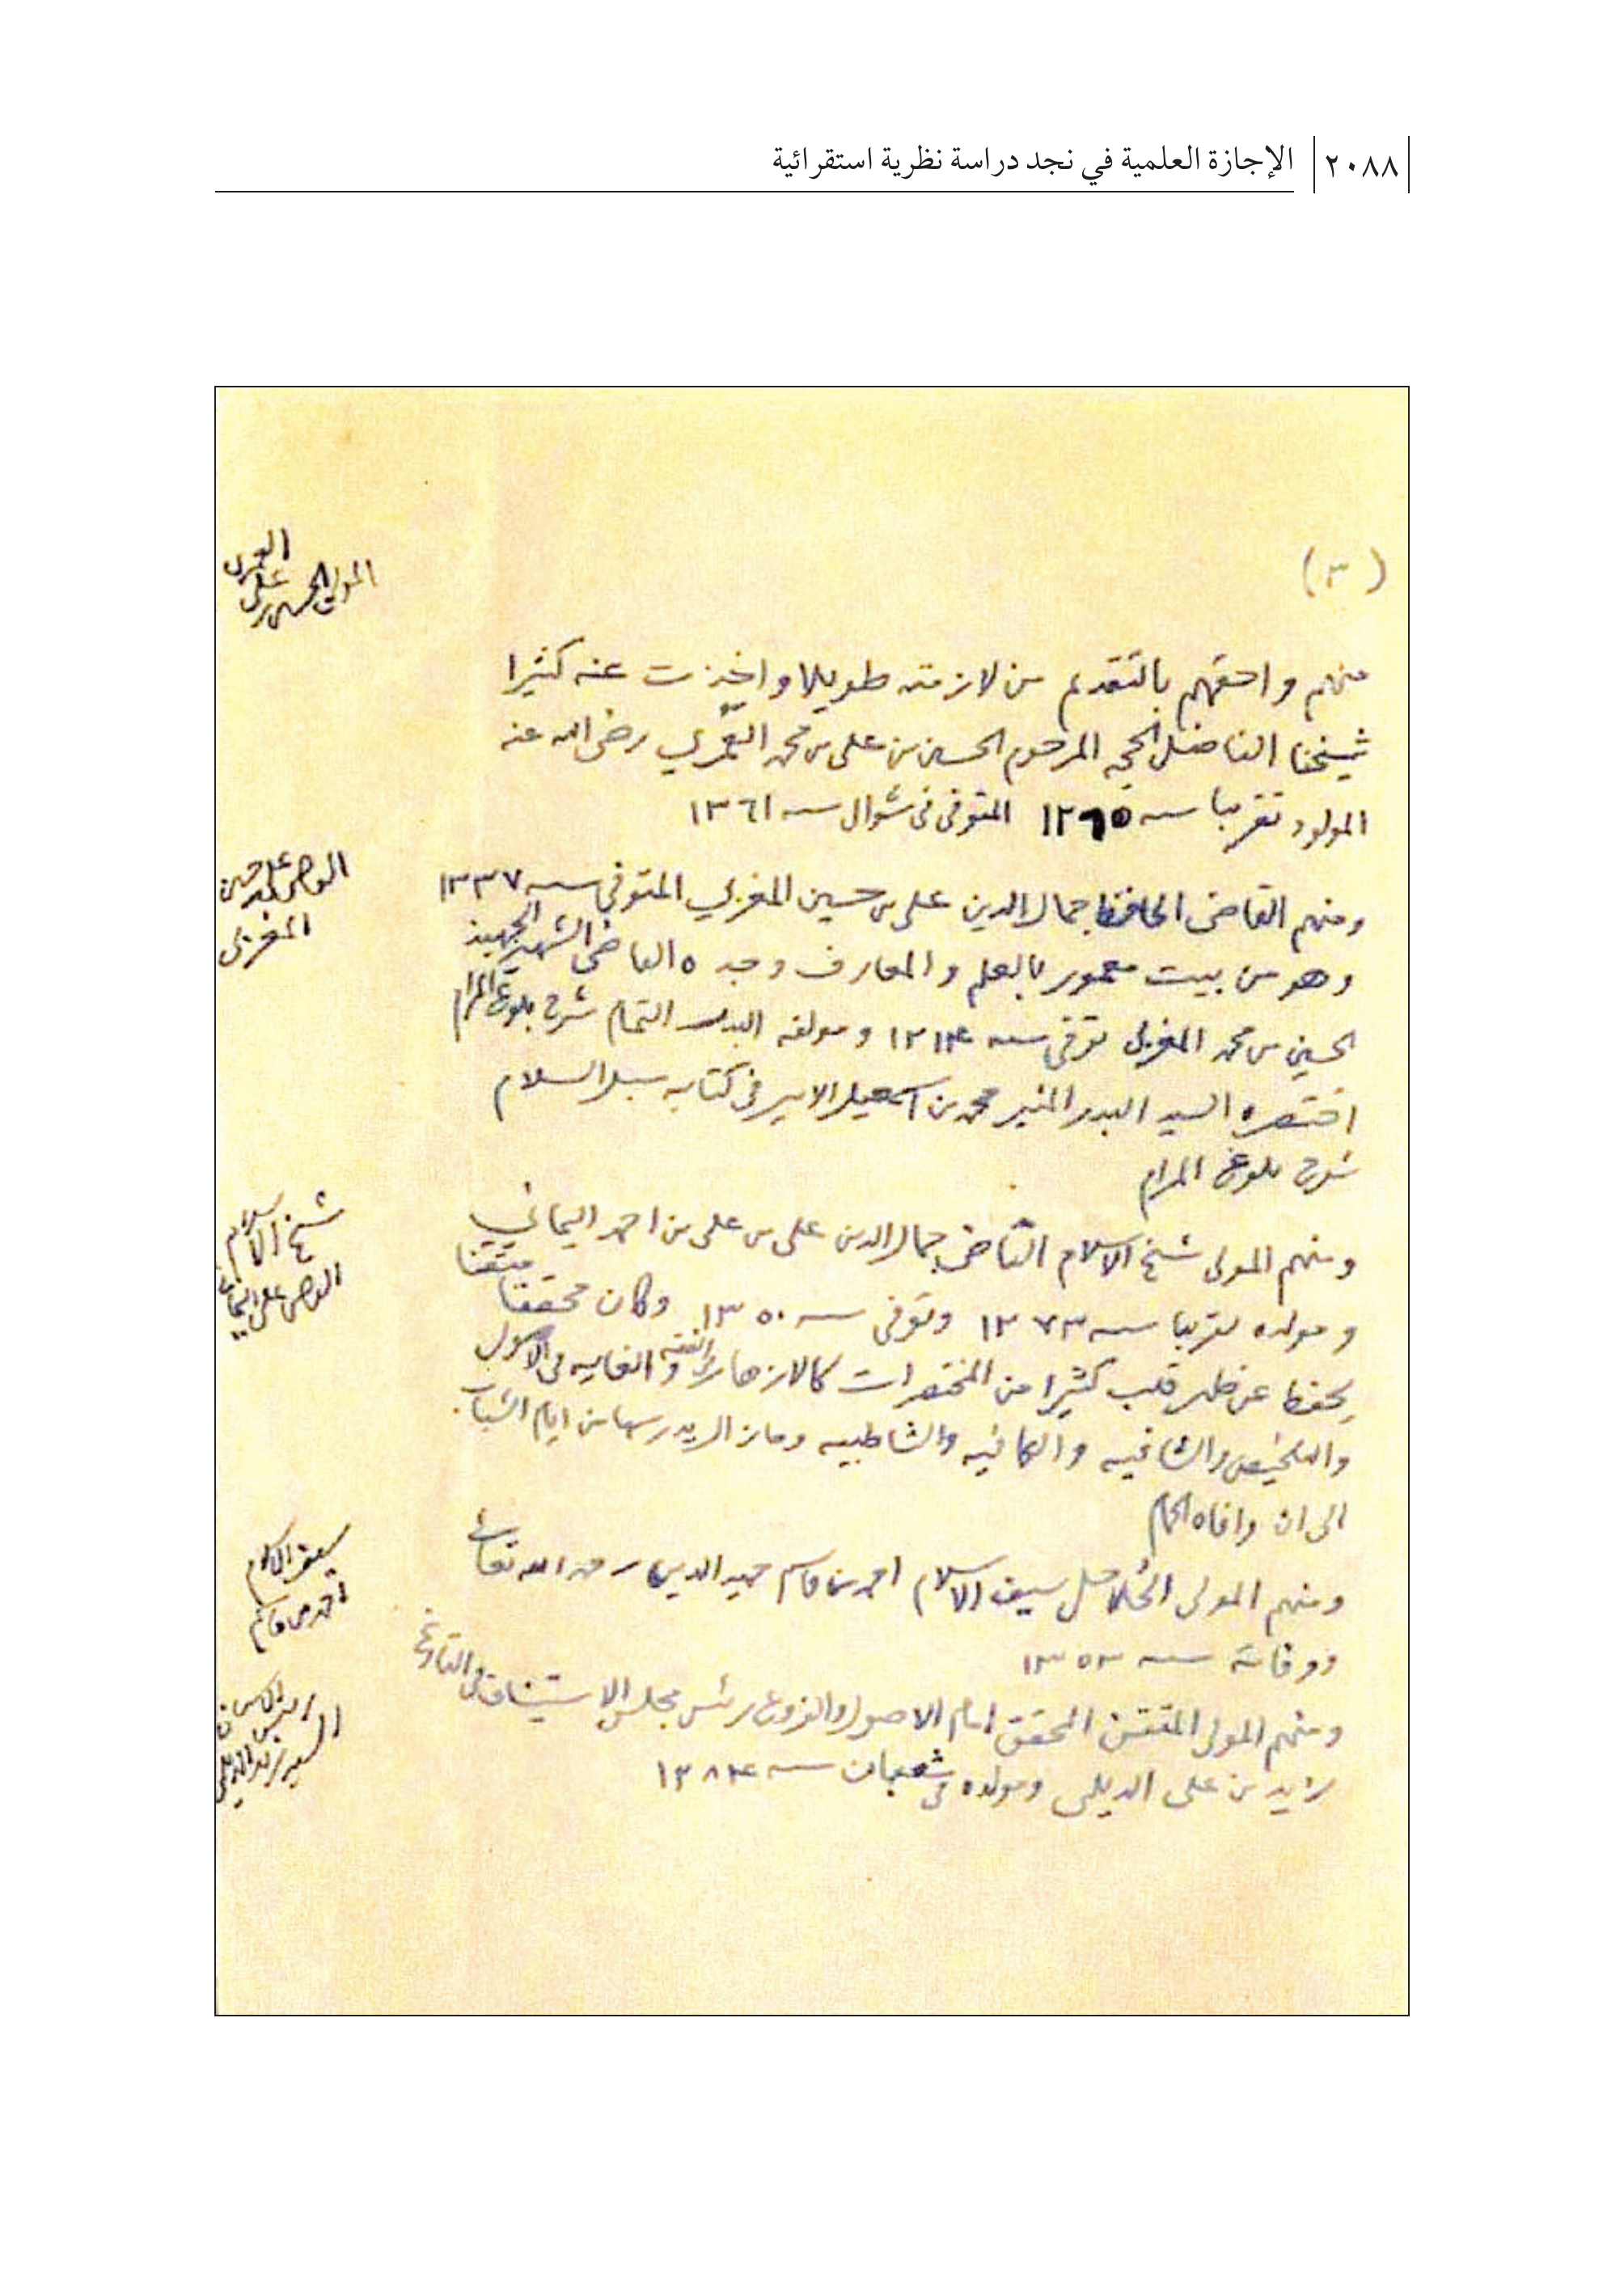 ٢٠٨٨ الإجازة العلمية في نجد دراسة نظرية استقرائية
(٣)
العمري
المولى الحسين بن علي
منهم واحقهم بالتقدم من لازمته طويلا واخذت عنه كثيرا
شيخنا الفاضل الحجه المرحوم الحسين بن على بن محمد العمري رضى الله عنه
المولود تقريبا سنه ١٢٦٥ المتوفى فى شوال سنه ١٣٦١
على حسين
المغربى
ومنهم القاضى الحافظ جمال الدين على بن حسين المغربي المتوفى سنه ١٣٣٧
وهو من بيت معمور بالعلم والمعارف وجده القاضى الشهير الجهبذ
الحسين بن محمد المغربى توفى سنه ١٢١٤ ومولفه البدر التمام شرح بلوغ المرام
اختصره السيد البدر المنير محمد بن اسمعيل الامير فى كتابه سبل السلام
شرح بلوغ المرام
شيخ الاسلام
على اليمانى
ومنهم المولى شيخ الاسلام القاضى جمال الدين على بن على بن احمد اليماني
ومولده تقريبا سنه ١٢٧٣ وتوفى سنه ١٣٥٠ وكان محققا متقنا
يحفظ عن ظهر قلب كثيرا من المختصرات كالازهار فى الفقه والغايه فى الاصول
والتلخيص والشافيه والكافيه والشاطبيه وما زال يدرسها من ايام الشباب
الى ان وافاه الحمام
سيف الاسلام
احمد بن قاسم
ومنهم المولى سيف الاسلام احمد بن قاسم حميد الدين رحمه الله تعالى
ووفاته سنه ١٣٥٣
السيد زيد الديلمى
ومنهم المولى المتقن المحقق امام الاصول والفروع رئيس مجلس الاستيناف
زيد بن على الديلمى ومولده فى شعبان سنه ١٢٨٤